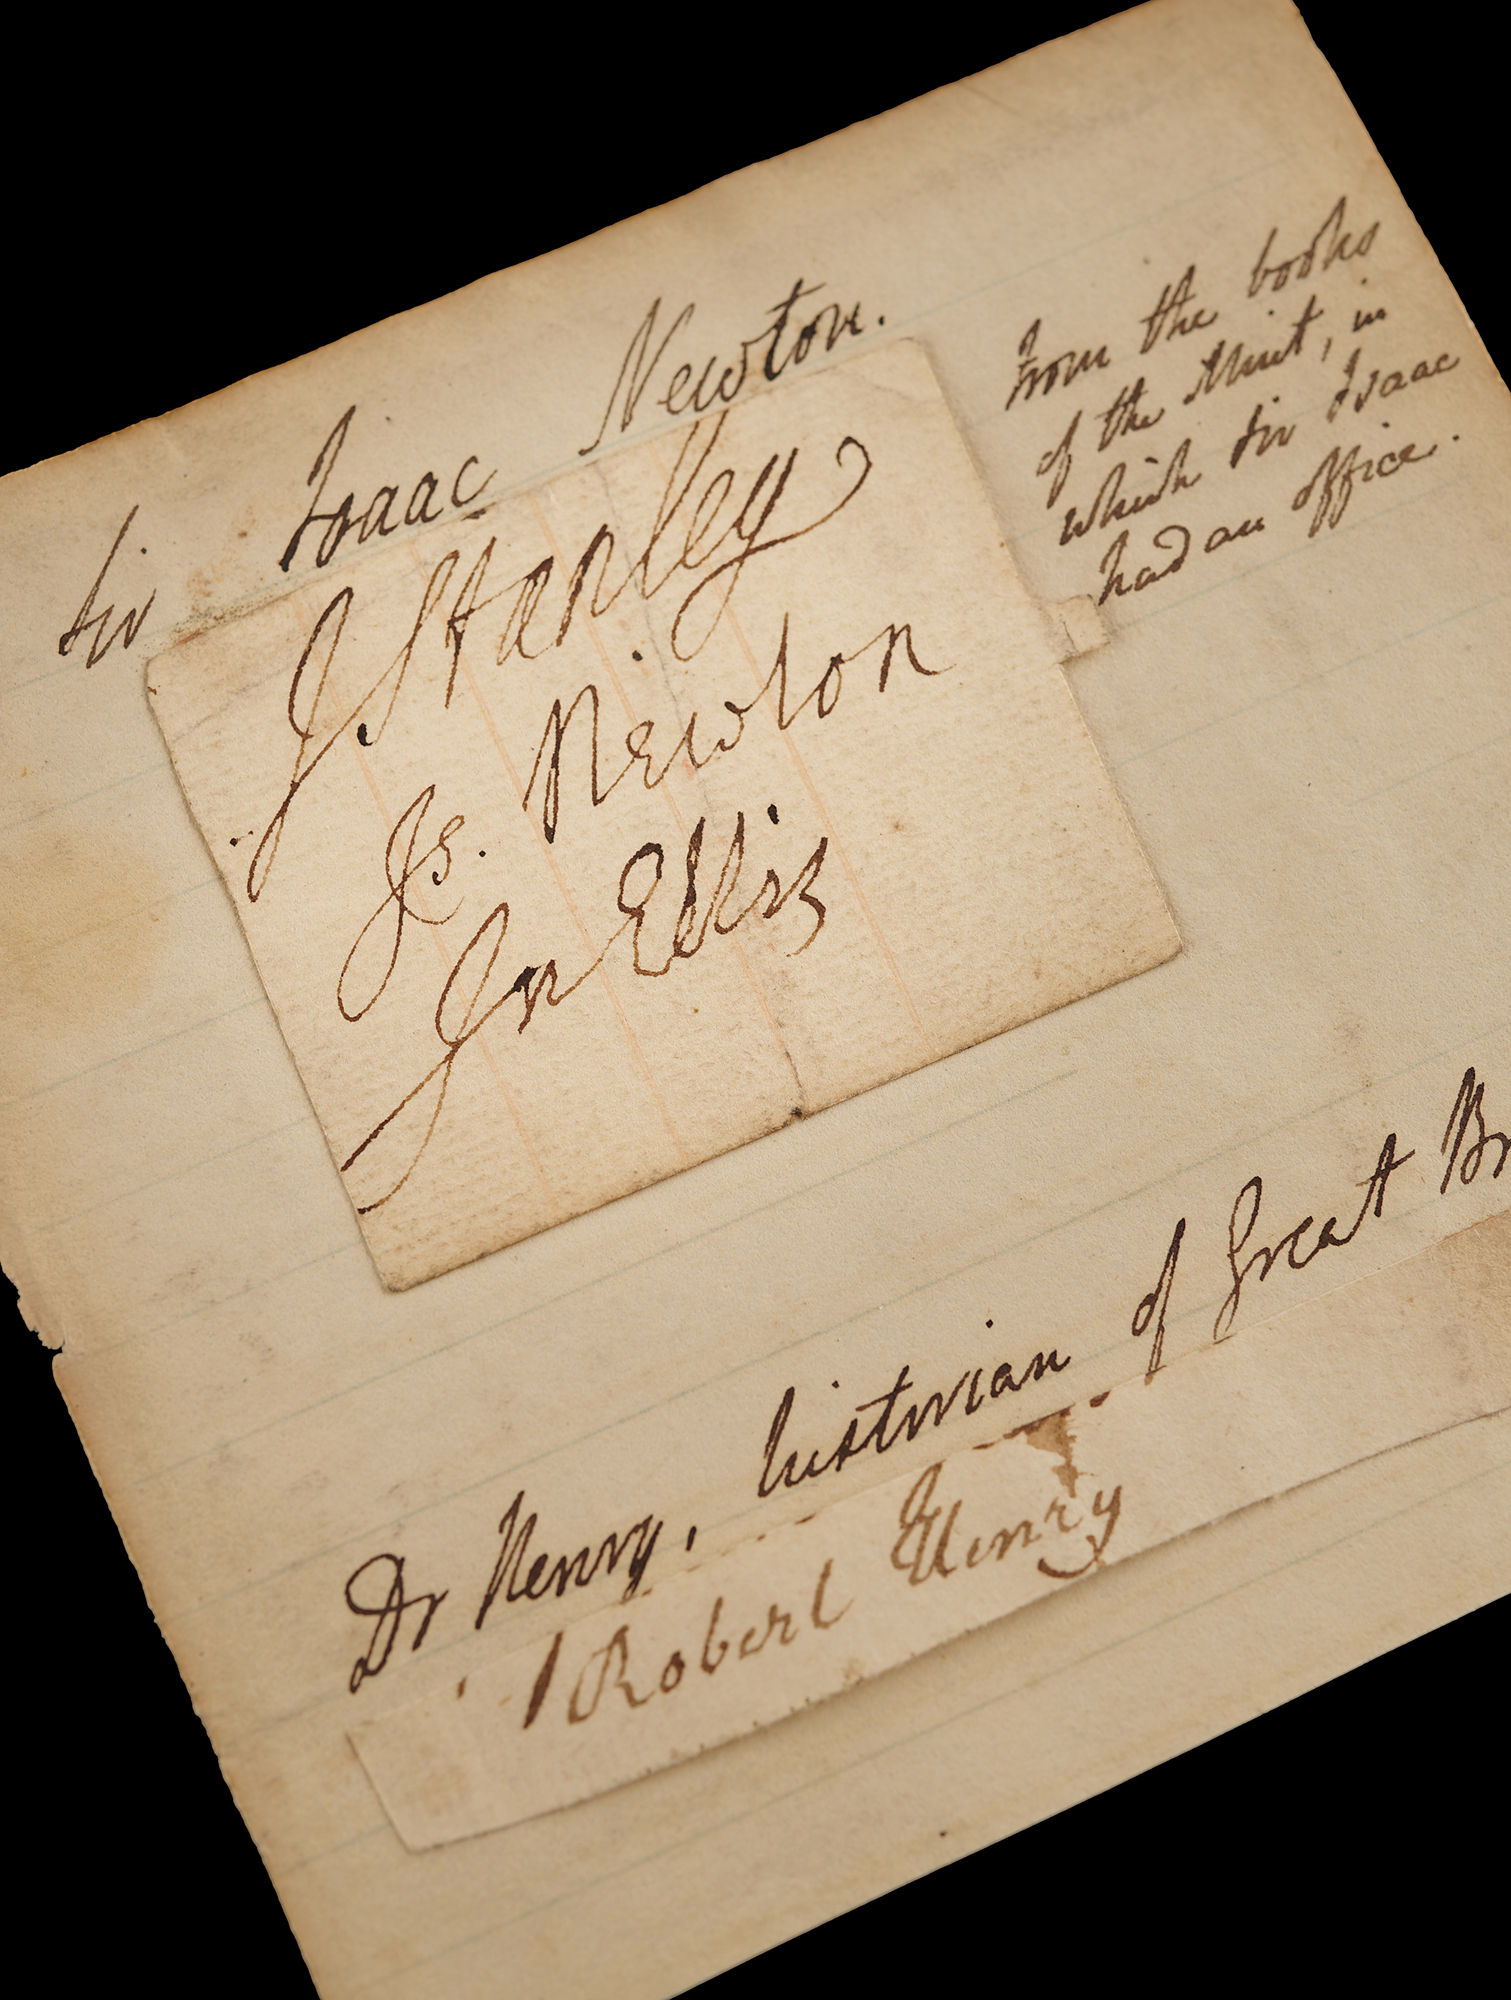 Sir Isaac Newton.
from the books
of the Mint, in
which Sir Isaac
had an office.
J. Stanley
Is. Newton
Jn Ellis
Dr Henry, historian of Great Br
Robert Henry